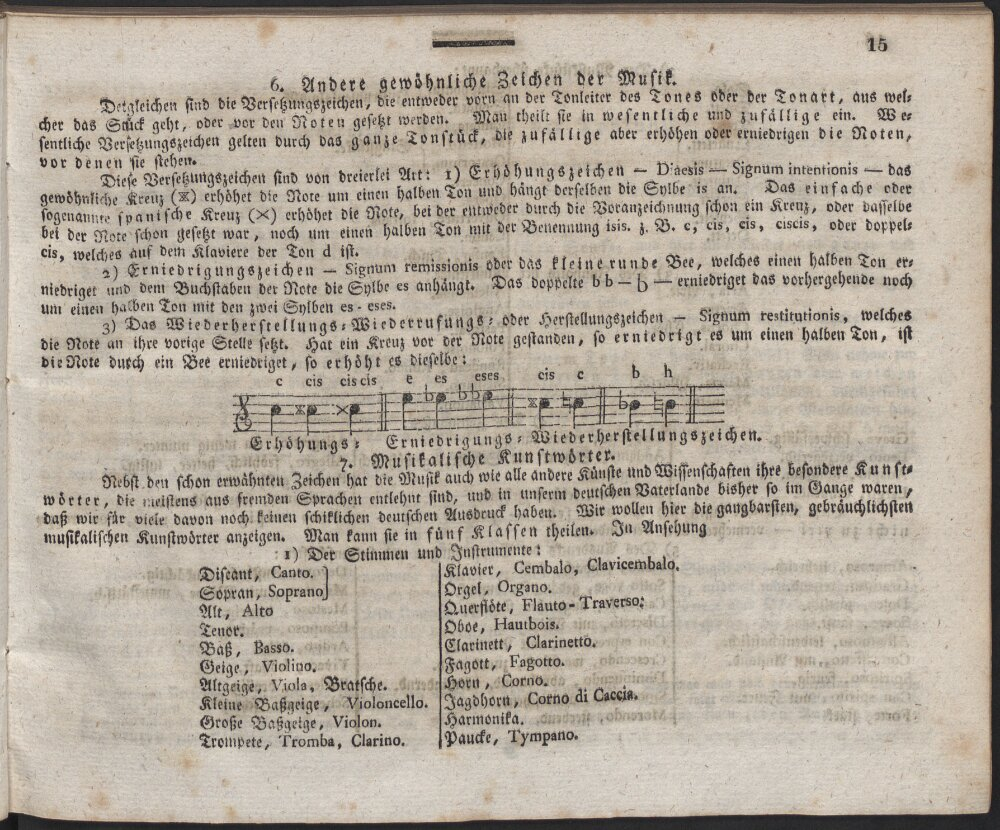 15
6. Andere gewöhnliche Zeichen der Musik.
Detgleichen sind die Versetzungszeichen, die entweder vorn an der Tonleiter des Tones oder der Tonart, aus wel-
cher das Stück geht, oder vor den Noten gesetzt werden. Man theilt sie in wesentliche und zufällige ein. We-
sentliche Versetzungszeichen gelten durch das ganze Tonstück, die zufällige aber erhöhen oder erniedrigen die Noten,
vor denen sie stehen.
Diese Versetzungszeichen sind von dreierlei Art: 1) Erhöhungszeichen — D'aesis — Signum intentionis — das
gewöhnliche Kreuz (※) erhöhet die Note um einen halben Ton und hängt derselben die Sylbe is an. Das einfache oder
sogenannte spanische Kreuz (×) erhöhet die Note, bei der entweder durch die Voranzeichnung schon ein Kreuz, oder dasselbe
bei der Note schon gesetzt war, noch um einen halben Ton mit der Benennung isis. z. B. c, cis, cis, ciscis, oder doppel-
cis, welches auf dem Klaviere der Ton d ist.
2) Erniedrigungszeichen — Signum remissionis oder das kleine runde Bee, welches einen halben Ton er-
niedriget und dem Buchstaben der Note die Sylbe es anhängt. Das doppelte bb — — erniedriget das vorhergehende noch
um einen halben Ton mit den zwei Sylben es - eses.
3) Das Wiederherstellungs- Wiederrufungs- oder Herstellungszeichen — Signum restitutionis, welches
die Note an ihre vorige Stelle setzt. Hat ein Kreuz vor der Note gestanden, so erniedrigt es um einen halben Ton, ist
die Note durch ein Bee erniedriget, so erhöht es dieselbe:
c cis ciscis e es eses cis c b h
Erhöhungs- Erniedrigungs- Wiederherstellungszeichen.
7. Musikalische Kunstwörter.
Nebst den schon erwähnten Zeichen hat die Musik auch wie alle andere Künste und Wissenschaften ihre besondere Kunst-
wörter, die meistens aus fremden Sprachen entlehnt sind, und in unserm deutschen Vaterlande bisher so im Gange waren,
daß wir für viele davon noch keinen schiklichen deutschen Ausdruck haben. Wir wollen hier die gangbarsten, gebräuchlichsten
musikalischen Kunstwörter anzeigen. Man kann sie in fünf Klassen theilen. In Ansehung
1) Der Stimmen und Instrumente:
Discant, Canto.
Sopran, Soprano
Alt, Alto
Tenor.
Baß, Basso.
Geige, Violino.
Altgeige, Viola, Bratsche.
Kleine Baßgeige, Violoncello.
Große Baßgeige, Violon.
Trompete, Tromba, Clarino.
Klavier, Cembalo, Clavicembalo.
Orgel, Organo.
Querflöte, Flauto-Traverso:
Oboe, Hautbois.
Clarinett, Clarinetto.
Fagott, Fagotto.
Horn, Corno.
Jagdhorn, Corno di Caccia.
Harmonika.
Paucke, Tympano.